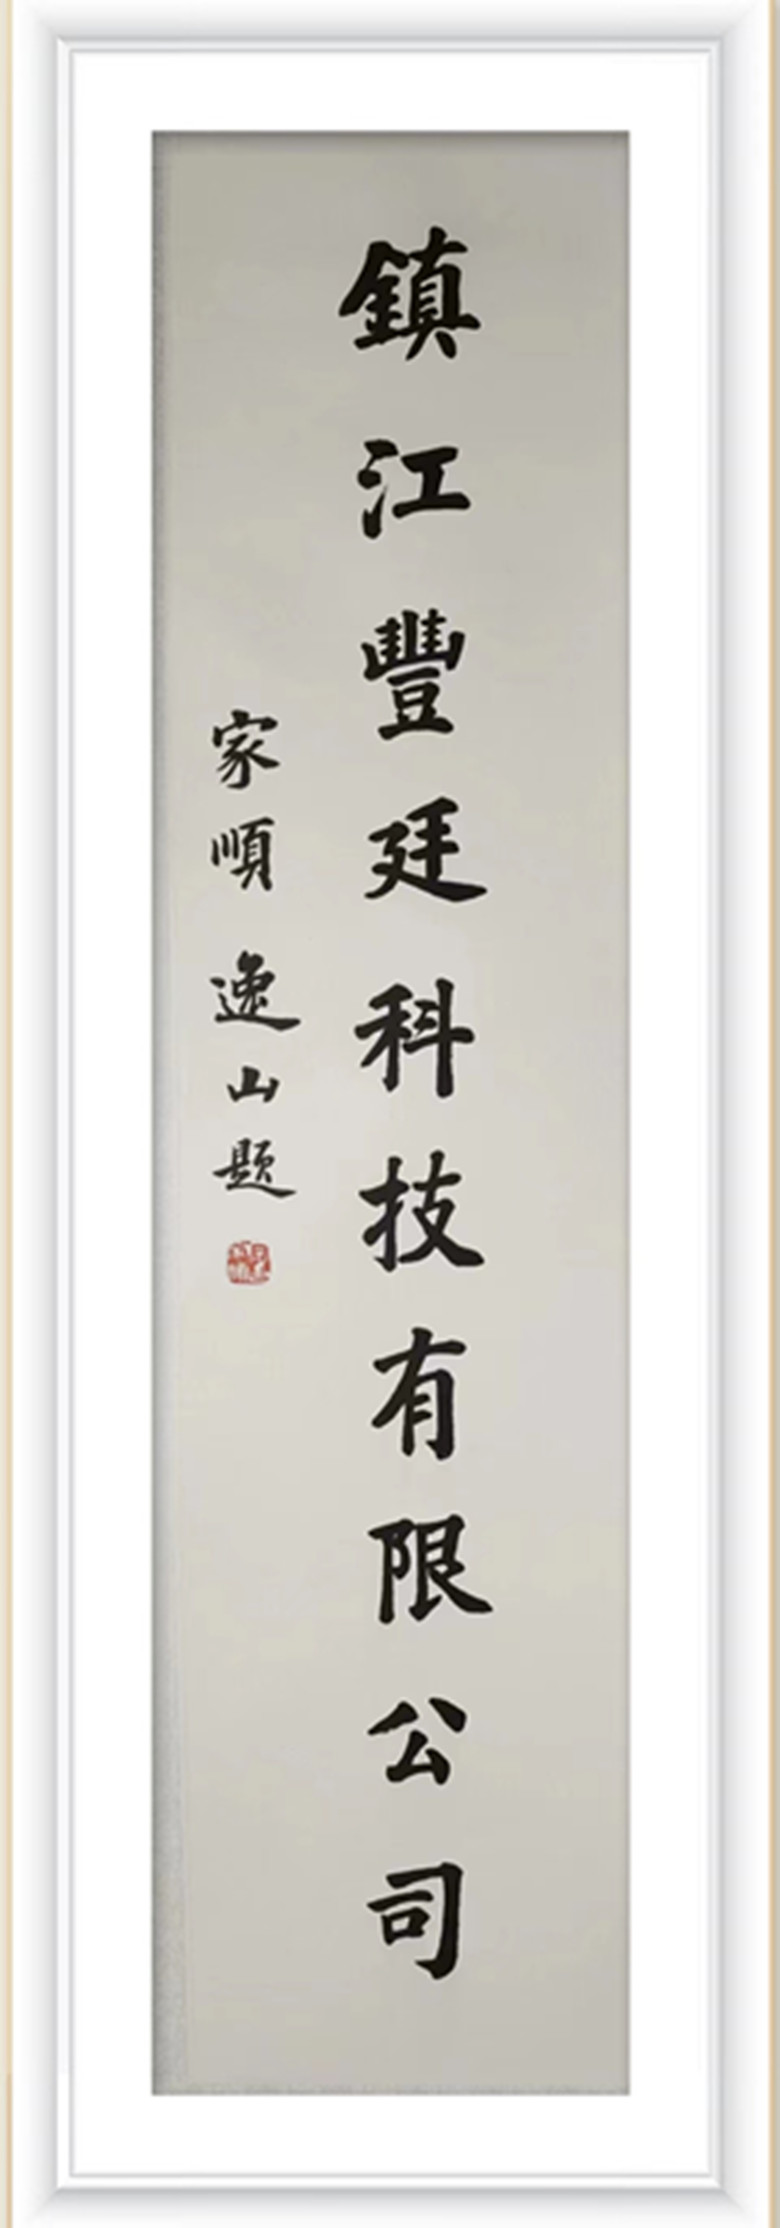 鎮江豐廷科技有限公司
家順 逸山題